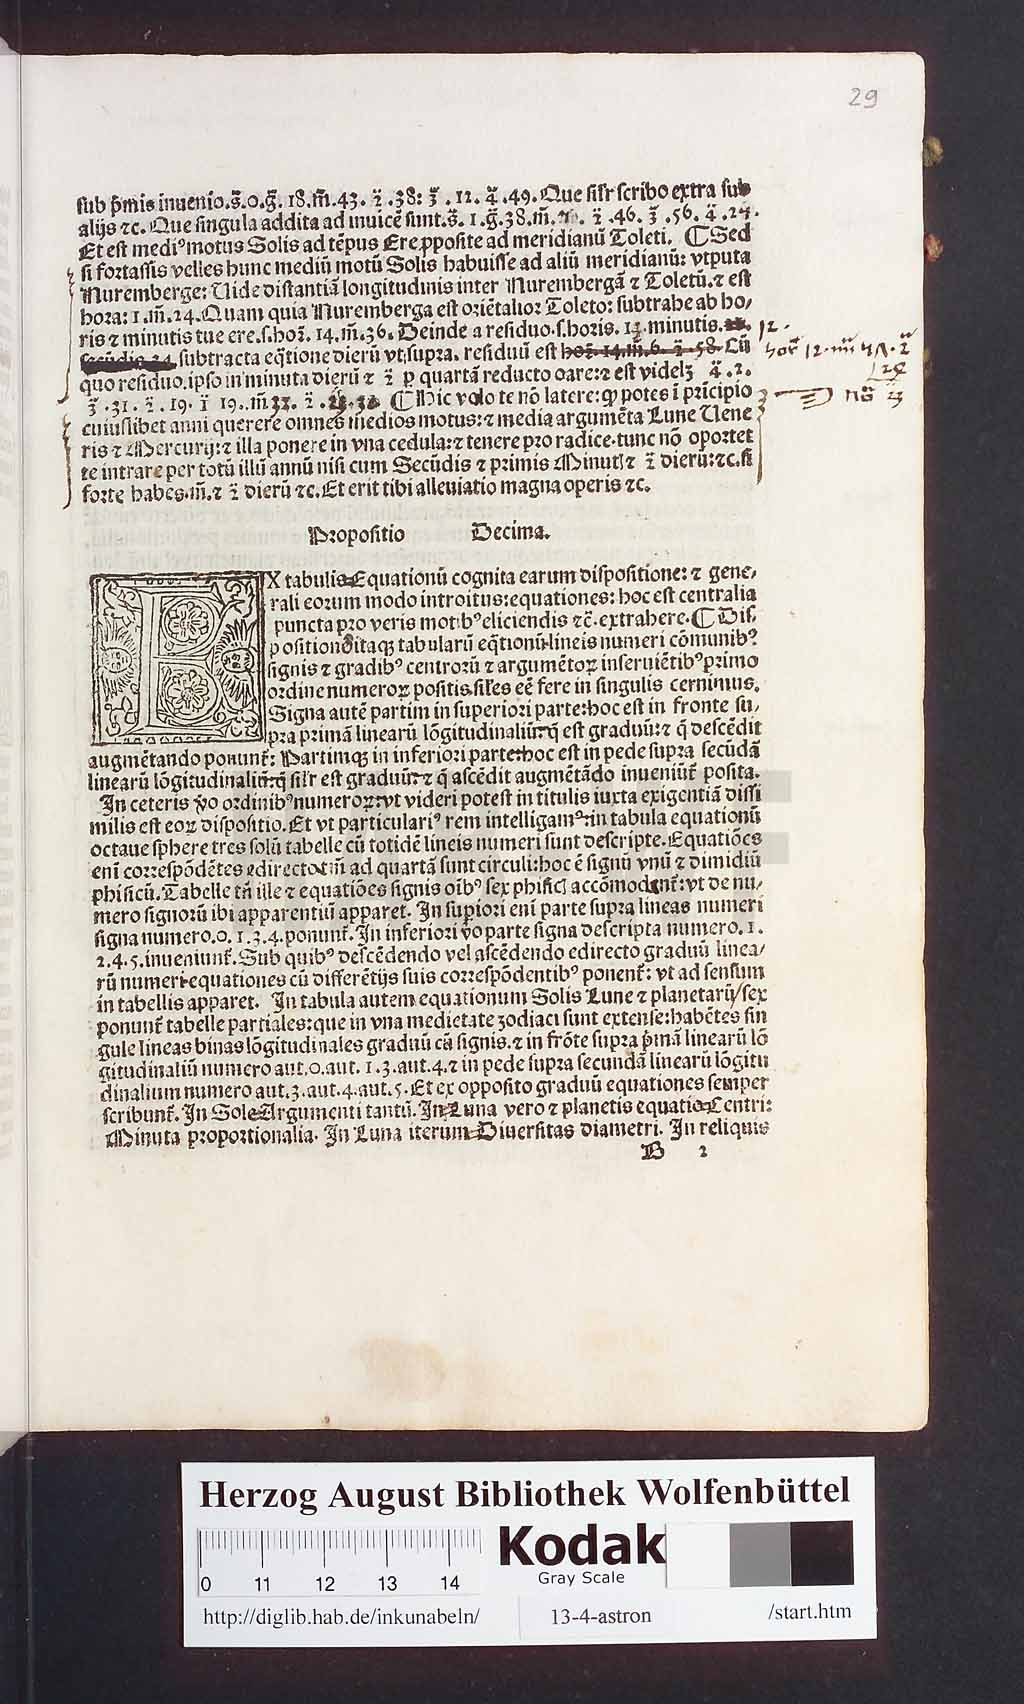 29
sub p̄mis inuenio.s̄.0.ḡ.18.m̄.43.2̄.38:3̄.12.4̄.49.Que silr scribo extra sub
alijs ⁊c. Que singula addita ad inuicē sunt.s̄.1.ḡ.38.m̄. 2̄.46.3̄.56.4̄.24.
Et est mediꝰ motus Solis ad tēpus Ere ꝓposite ad meridianū Toleti. ¶ Sed
si fortassis velles hunc mediū motū Solis habuisse ad aliū meridianū: vtputa
Nuremberge: Uide distantiā longitudinis inter Nurembergā ⁊ Toletū.⁊ est
hora: 1.m̄.24.Quam quia Nuremberga est oriētalior Toleto: subtrahe ab ho,
ris ⁊ minutis tue ere.s.hoꝝ.14.m̄.36. Deinde a residuo.s.horis.13 minutis. 12.
subtracta eq̄tione dierū vt.supra. residuū est hoꝝ.14.m̄.6.2̄.58. Cū
hor̄ 12 m̄ 2̄
quo residuo.ipso in minuta dierū ⁊ 2̄ ꝑ quartā reducto oare:⁊ est videlꝫ 4̄.2.
3̄.31.2̄.19.1̄ 19..m̄ 2̄. ¶ Hic volo te nō latere: ꝙ potes ī prīcipio
nō
cuiuslibet anni querere omnes medios motus: ⁊ media argumēta Lune Uene
ris ⁊ Mercurij: ⁊ illa ponere in vna cedula: ⁊ tenere pro radice.tunc nō oportet
te intrare per totū illū annū nisi cum Secūdis ⁊ primis Minutꝭ ⁊ 2̄ dierū: ⁊c.si
forte habes.m̄.⁊ 2̄ dierū ⁊c.Et erit tibi alleuiatio magna operis ⁊c.
Propositio Decima.
EX tabulis Equationū cognita earum dispositione: ⁊ gene,
rali eorum modo introitus: equationes: hoc est centralia
puncta pro veris motibꝰ eliciendis ⁊c̄.extrahere. ¶ Dis,
positionō itaqꝫ tabularū eq̄tionū lineis numeri cōmunibꝰ
signis ⁊ gradibꝰ centrorū ⁊ argumētoꝝ inseruiētibꝰ primo
ordine numeroꝝ positis.siles eē fere in singulis cernimus.
Signa autē partim in superiori parte: hoc est in fronte su,
pra primā linearū lōgitudinaliū: q̄ est graduū: ⁊ q̄ descēdit
augmētando ponunt̄: Partimqꝫ in inferiori parte: hoc est in pede supra secūdā
linearū lōgitudinaliū: q̄ silr est graduū: ⁊ q̄ ascēdit augmētādo inueniūt̄ posita.
In ceteris v̄o ordinibꝰ numeroꝝ: vt videri potest in titulis iuxta exigentiā dissi
milis est eoꝝ dispositio. Et vt particulariꝰ rem intelligamꝰ: in tabula equationū
octaue sphere tres solū tabelle cū totidē lineis numeri sunt descripte.Equatiōes
enī correspōdētes edirecto vsqꝫ ad quartā sunt circuli: hoc ē signū vnū ⁊ dimidiū
phisicū.Tabelle tn̄ ille ⁊ equatiōes signis oībꝰ sex phisicꝭ accōmodant̄: vt de nu,
mero signorū ibi apparentiū apparet. In sup̄iori enī parte supra lineas numeri
signa numero.0.1.3.4.ponunt̄. In inferiori v̄o parte signa descripta numero.1.
2.4.5.inueniunt̄. Sub quibꝰ descēdendo vel ascēdendo edirecto graduū linea/
rū numeri equationes cū differētijs suis correspōdentibꝰ ponent̄: vt ad sensum
in tabellis apparet. In tabula autem equationum Solis Lune ⁊ planetarū/sex
ponunt̄ tabelle partiales: que in vna medietate zodiaci sunt extense: habētes sin
gule lineas binas lōgitudinales graduū cū signis.⁊ in frōte supra p̄mā linearū lō
gitudinaliū numero aut.0.aut.1.3.aut.4.⁊ in pede supra secundā linearū lōgitu
dinalium numero aut.3.aut.4.aut.5.Et ex opposito graduū equationes semper
scribunt̄. In Sole Argumenti tantū. In Luna vero ⁊ planetis equatio Centri:
Minuta proportionalia. In Luna iterum Diuersitas diametri. In reliquis
B 2
Herzog August Bibliothek Wolfenbüttel
Kodak
Gray Scale
0 11 12 13 14
http://diglib.hab.de/inkunabeln/ 13-4-astron /start.htm